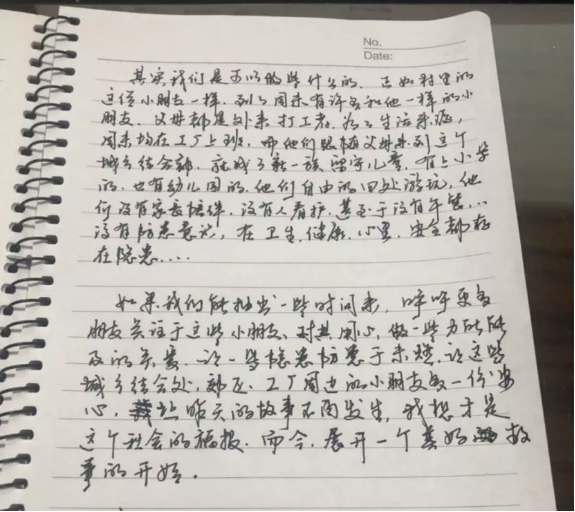 No.
Date:
其实我们是可以做些什么的. 正如村里的
这位小朋友一样. 到了周末有许多和他一样的小
朋友. 父母都是外来打工者. 为了生活来源,
周末均在工厂上班, 而他们跟随父母来到这个
城乡结合部. 就成了新一族留守儿童. 有上小学
的. 也有幼儿园的. 他们自由的四处游玩, 他
们没有家长陪伴. 没有人看护. 甚至于没有午餐...
没有防患意识, 在卫生. 健康. 心里. 安全都存
在隐患....
如果我们能抽出一些时间来, 呼吁更多
朋友关注于这些小朋友、对其关心, 做一些力所能
及的关爱. 让一些隐患防患于未燃. 让这些
城乡结合处, 工厂周边的小朋友多一份安
心, 昨天的故事不再发生, 我想才是
这个社会的福报. 而今, 展开一个美好的故
事的开始.